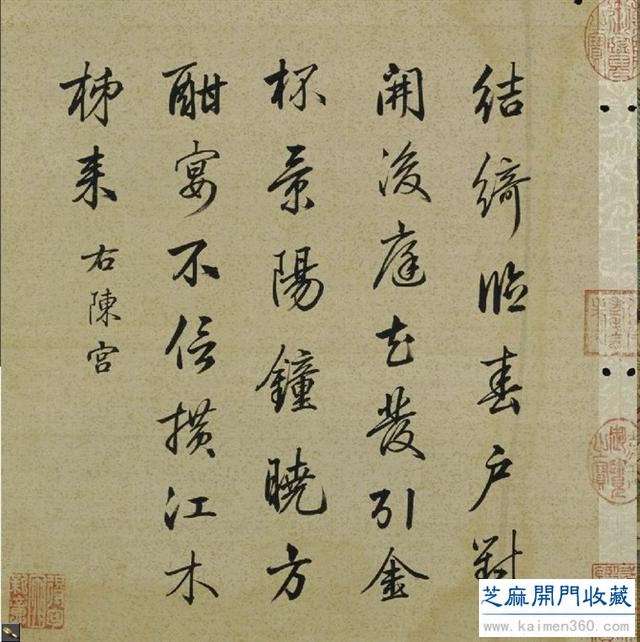 結綺臨春戶對
開後庭花發引金
杯景陽鐘曉方
酣宴不信橫江木
柹來
右陳宮
芝麻開門收藏
www.kaimen360.com